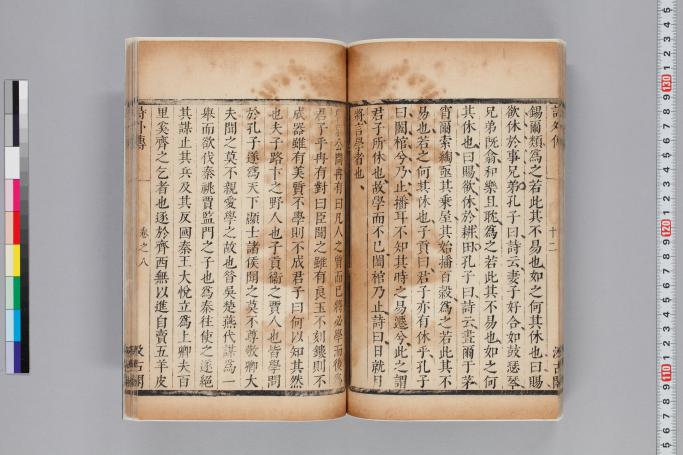 詩外傳 十二 汲古閣
錫爾類爲之若此其不易也如之何其休也曰賜
欲休於事兄弟孔子曰詩云妻子好合如鼓瑟琴
兄弟既翕和樂且耽爲之若此其不易也如之何
其休也曰賜欲休於耕田孔子曰詩云晝爾于茅
宵爾索綯亟其乘屋其始播百穀爲之若此其不
易也若之何其休也子貢曰君子亦有休乎孔子
曰闔棺兮乃止播耳不知其時之易遷兮此之謂
君子所休也故學而不已闔棺乃止詩曰日就月
將言學者也
公問冉有曰凡人之質而已將必學而後爲
君子乎冉有對曰臣聞之雖有良玉不刻鏤則不
成器雖有美質不學則不成君子曰何以知其然
也夫子路卞之野人也子貢衞之賈人也皆學問
於孔子遂爲天下顯士諸侯聞之莫不尊敬卿大
夫聞之莫不親愛學之故也昔吳楚燕代謀爲一
舉而欲伐秦姚賈監門之子也爲秦往使之遂絕
其謀止其兵及其反國秦王大悅立爲上卿夫百
里奚齊之乞者也逐於齊西無以進自賣五羊皮
詩外傳 卷之八 汲古閣